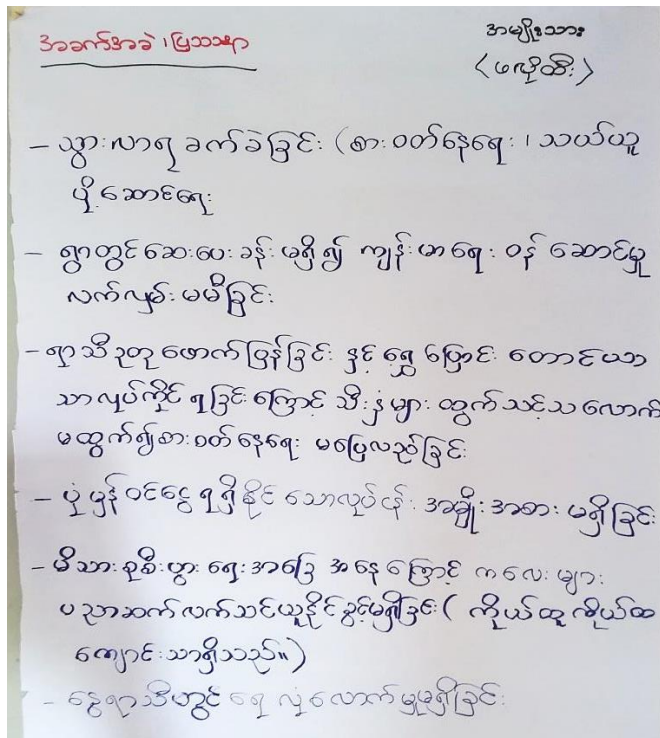 အခက်အခဲ ၊ ပြဿနာ
အမျိုးသား
(ဖလိုထီး)
- သွားလာရ ခက်ခဲခြင်း (စားဝတ်နေရေး ၊ သယ်ယူ
ပို့ဆောင်ရေး
- ရွာတွင်ဆေးပေးခန်း မရှိ၍ ကျန်းမာရေး ဝန်ဆောင်မှု
လက်လှမ်း မမီခြင်း
- ရာသီဥတု ဖောက်ပြန်ခြင်း နှင့် ရွှေ့ပြောင်း တောင်ယာ
သာလုပ်ကိုင် ရခြင်းကြောင့် သီးနှံများ ထွက်သင့်သလောက်
မထွက်၍စားဝတ်နေရေး မပြေလည်ခြင်း
- ပုံမှန်ဝင်ငွေ ရရှိနိုင်သောလုပ်ငန်း အမျိုးအစား မရှိခြင်း
- မိသားစုစီးပွားရေးအခြေအနေကြောင့် ကလေးများ
ပညာဆက်လက်သင်ယူနိုင်ခွင့်မရှိခြင်း ( ကိုယ်ထူကိုယ်ထ
ကျောင်းသာရှိသည်။)
- နွေရာသီတွင် ရေ လုံလောက်မှုမရှိခြင်း